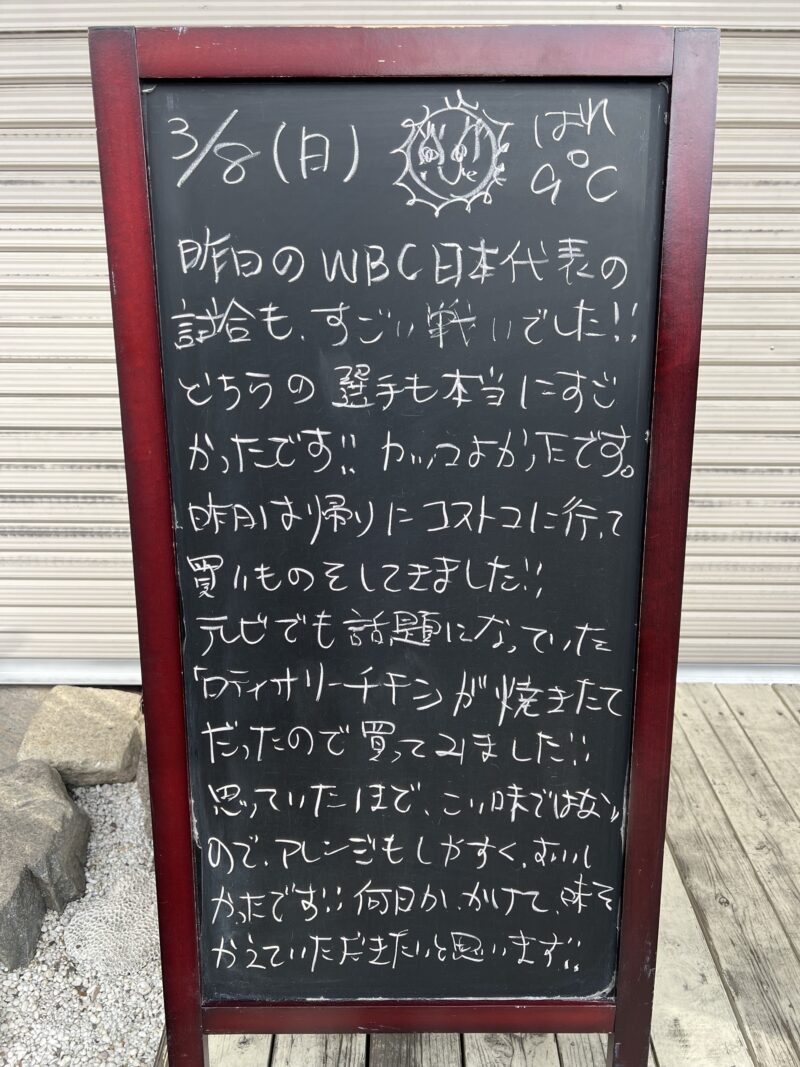 3/8(日) はれ
9℃
昨日のWBC日本代表の
試合も、すごい戦いでした!!
どちらの選手も本当にすご
かったです!! カッコよかったです。
昨日は帰りにコストコに行って
買いものをしてきました!!
テレビでも話題になっていた
「ロティサリーチキンが焼きたて
だったので買ってみました!!
思っていたほど、こい味ではない
ので、アレンジもしやすく、おいし
かったです!! 何日か、かけて、味を
かえていただきたいと思います!!